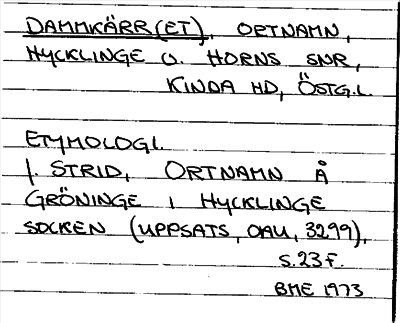 DAMMKÄRR(ET), ORTNAMN,
HYCKLINGE O. HORNS SNR,
KINDA HD, ÖSTG.L.
ETYMOLOGI.
I. STRID, ORTNAMN Å
GRÖNINGE I HYCKLINGE
SOCKEN (UPPSATS, OAU, 3299),
S.23F.
BME 1973